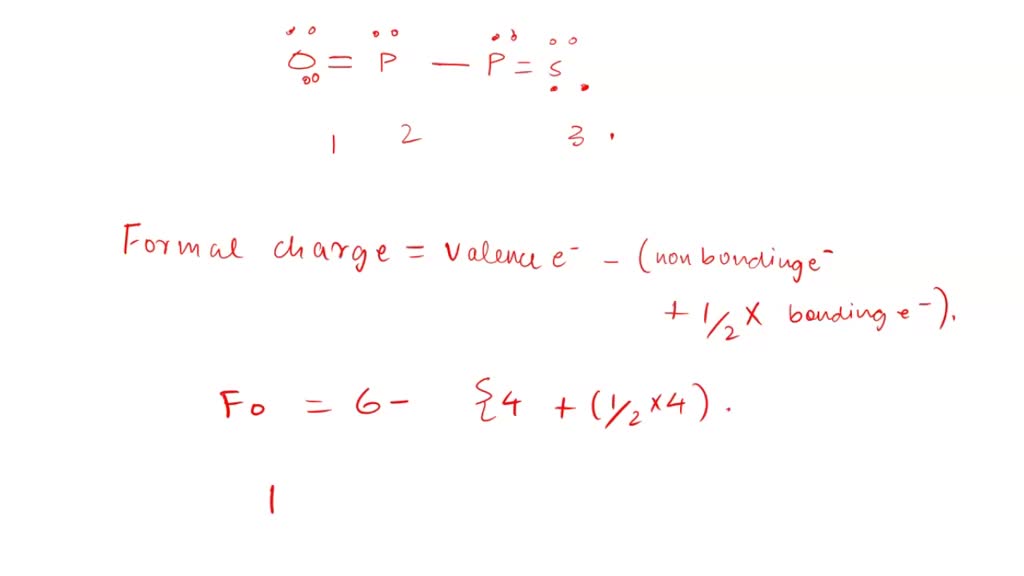 O = P — P = S
1 2 3 .
Formal charge = valence e⁻ – (non bonding e⁻
+ 1/2 × bonding e⁻).
Fo = 6 – {4 + (1/2 × 4).
1